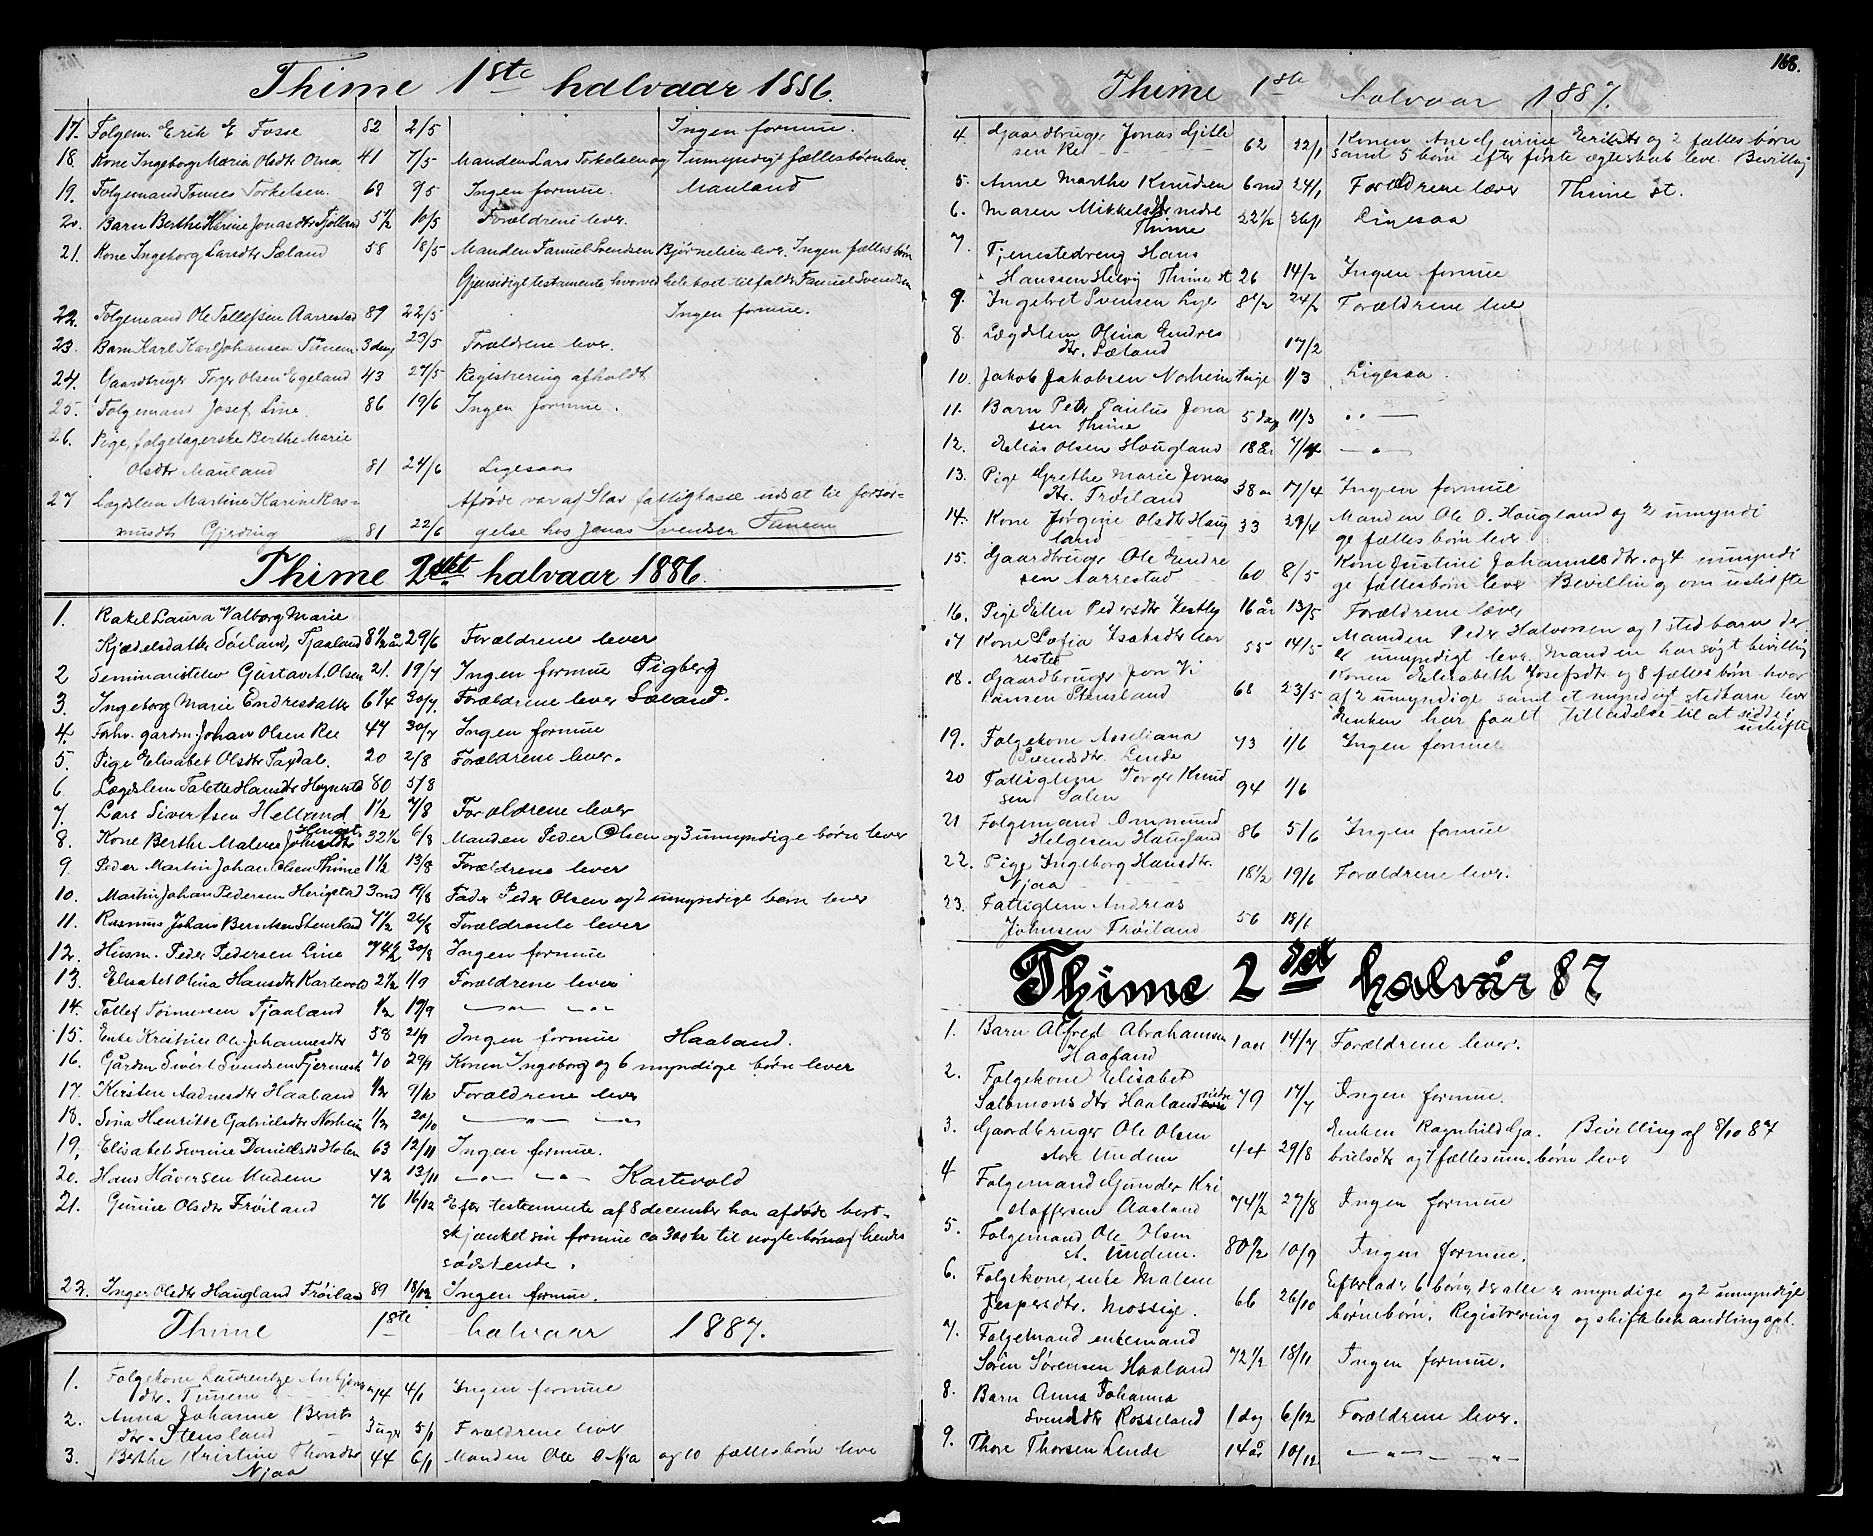 Thime 1ste halvaar 1886.
17. Folgem. Erik E Fosse 82 2/5 Ingen formue.
18. Kone Ingeborg Maria Olsdtr Oma 41 7/5 Manden Lars Torkelsen og 7 umyndige fællesbørn leve.
19. Folgemand Tønnes Torkelsen. 68 9/5 Ingen formue. Mauland
20. Barn Berthe Karine Jonasdtr Fjølland 5 1/2 10/5 Forældrene lever.
21. Kone Ingeborg Larsdtr Sæland 58 18/5 Manden Samuel Svendsen Bjørnelien lever. Ingen fælles børn
Gjensidigt testamente hvorved hele boet tilfalder Samuel Svendsen
22. Folgemand Ole Tollefsen Aarrestad 89 22/5 Ingen formue.
23. Barn Karl Karl Johansen Tunem 3 dag 23/5 Forældrene lever.
24. Gaardbruger Torger Olsen Egeland 43 27/5 Registrering afholdt
25. Folgemand Josef Line. 86 19/6 Ingen formue.
26. Pige, folgetagerske Berthe Marie
Olsdtr Mauland 81 24/6 Ligesaa
27 Lægdslem Martine Karine Ras-
musdtr Gjerding 81 22/6 Afdøde var af Stav fattigkasse udsat til forsør-
gelse hos Jonas Svendsen Tunem
Thime 2det halvaar 1886.
1. Rakel Laura Valborg Marie
Kjædelsdatter Søiland, Tjaaland 8 1/2 år 29/6 Forældrene lever
2 Seminaristelev Gustav T. Olsen 21. 19/7 Ingen formue Pigberg
3. Ingeborg Marie Endresdatter 6 1/4 30/7. Forældrene lever Sæland.
4. Forhv. gardm Johan Olsen Ree 47 30/7 Ingen formue
5. Pige Elisabet Olsdtr Taxdal. 20 2/8 Forældrene lever.
6. Lægdslem Talette Hansdtr Høgnestad 80 5/8
7. Lars Sivertsen Helland 1 1/2 7/8 Forældrene lever
8. Kone Berthe Malene Johnsdtr Herigst. 32 1/2 6/8 Manden Peder Olsen og 3 umyndige børn lever
9 Peder Martin Johan Olsen Thime 1 1/2 13/8 Forældrene lever
10. Martin Johan Pedersen Herigstad 3 md 19/8 Fader Peder Olsen og 2 umyndige børn lever
11. Rasmus Johan Berntsen Stensland 7 1/2 26/8 Forældrene lever
12. Husm. Peder Pedersen Line 74 1/2 30/8 Ingen formue
13. Elisabet Olina Hansdtr Kartevold 2 1/2 1/9 Forældrene lever
14. Tollef Tønnesen Tjaaland 1/2 17/9 — " — — " —
15. Enke Kristine Ole Johannesdtr 58 21/9 Ingen formue Haaland.
16. Gårdm Sivert Svendsen Fjermestad 70 29/9 Konen Ingeborg og 6 myndige børn lever
17. Kirsten Aadnesdtr Haaland 1/2 9/10 Forældrene lever
18. Sina Henrikke Gabrielsdtr Norheim 1/2 20/10 — " — — " —
19. Elisabet Serine Danielsdtr Holen 63 12/11 Ingen formue.
20. Hans Håversen Undem 42 13/11 — " — — " — Kartevold
21. Gurine Olsdtr Frøiland 76 16/12 Efter testamente af 8 december har afdøde bort-
skjænket sin formue ca 300 kr til nogle børn af hendes
sødskende.
22. Inger Olsdtr Haugland Frøiland 89 18/12 Ingen formue.
Thime 1ste halvaar 1887.
1. Folgekone Laurentze Anbjørns
dtr. Tunem 74 4/1 Ingen formue
2. Anna Johanne Bernts
dtr. Stensland 3 uger 5/1 Forældrene lever
3. Berthe Kristine Thorsdtr
Njaa 44 6/1 Manden Ole O. Nja og 10 fællesbørn leve
168.
Thime 1ste halvaar 1887.
4. Gaardbruger Jonas Gitle
sen Re 62 22/1 Konen Ane Gurine Eriksdtr og 2 fælles børn
samt 5 børn efter første ægteskab leve. Bevilling
5. Anne Marthe Knudsen 6 md 24/1 Forældrene læver Thime st.
6. Maren Mikkelsdtr nedre
Thime 22 1/2 26/1 Ligesaa
7. Tjenestedreng Hans
Hanssen Helvig Thime st 26 14/2 Ingen formue
9. Ingebret Svensen Lye 8 1/2 24/2 Forældrene lever
8. Lægdslem Olina Endres
dtr. Sæland 17/2
10. Jakob Jakobsen Norheim 1 uge 1/3 Ligesaa.
11. Barn Peder Paulus Jona
sen Thime 5 dag 11/3 " —
12. Elias Olsen Haugland 18 år 7/4 — " —
13. Pige Grethe Marie Jonas
dtr. Frøiland 38 aar 17/4 Ingen formue
14. Kone Jørgine Olsdtr Haug
land 33 29/4 Manden Ole O. Haugland og 2 umyndi
ge fællesbørn lever
15. Gaardbruger Ole Endre
sen Aarrestad 60 8/5 Kone Justine Johannesdtr. og 4 umyndi
ge fællesbørn lever Bevilling om uskifte
16. Pige Ellen Pedersdtr Vestly 16 år 13/5 Forældrene læver
17 Kone Sofia Isaksdtr Aar
restad 55 14/5 Manden Peder Halvorsen og 1 stedbarn der
er umyndigt lever. Manden har søgt bevilling
18. Gaardbruger Jon Vi
lansen Stensland 68 23/5 Konen Elisabeth Josefsdtr og 8 fælles børn hvor
af 2 umyndige samt et myndigt stedbarn lever
Enken har faat tilladelse til at sidde i
uskifte
19. Folgekone Asseliana
Svendsdtr. Lende 73 1/6 Ingen formue
20 Fattiglem Torger Knud
sen Salen 94 1/6
21 Folgemand Ommund
Helgesen Haugland 86 5/6 Ingen formue
22. Pige Ingeborg Hansdtr.
Njaa 18 1/2 19/6 Forældrene lever.
23. Fattiglem Andreas
Johnsen Frøiland 56 18/6
Thime 2det halvår 87
1. Barn Alfred Abrahamsen
Haaland 1 aar 14/7 Forældrene lever.
2. Folgekone Elisabet
Salomons dtr Haaland nidre 79 17/7 Ingen formue.
3. Gaardbruger Ole Olsen
store Undem 44 29/8 Enken Ragnhild Ga. Bevilling af 8/10 87
brielsdtr og 7 fælles um. børn lever
4 Folgemand Gunder Kri
stoffersen Aasland 74 1/2 27/8 Ingen formue
5. Folgemand Ole Olsen
st. Undem. 80 1/2 10/9 Ingen formue.
6. Folgekone, enke Malene
Jespersdtr. Mossige. 66 26/10 Efterlader 6 børn, de alle er myndige og 2 umyndige
børnebørn. Registrering og skiftebehandling opt.
7. Folgemand enkemand
Søren Sørensen Haaland 72 1/2 18/11 Ingen formue.
8. Barn Anna Johanna
Svendsdtr Rosseland 1 dag 6/12 Forældrene lever.
9. Thore Thorsen Lende 14 år 10/12 — " — — " —